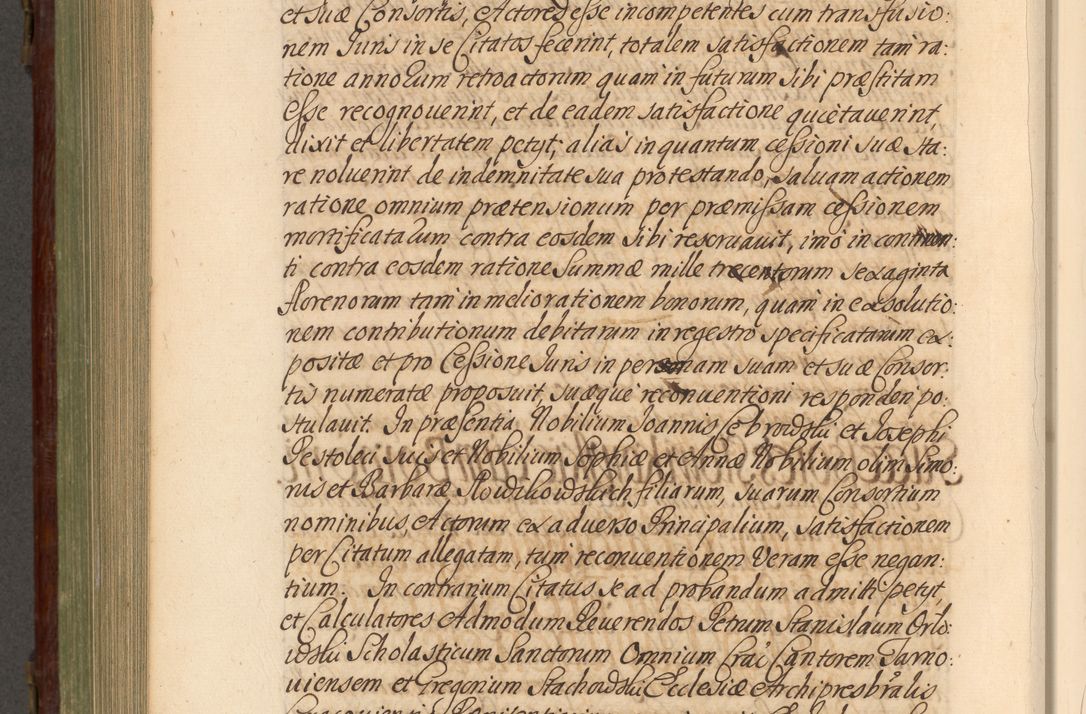 et suæ Consortis, Actores esse incompetentes cum transfusio:
nem Iuris in se Citatos fecerint, totalem satisfactionem tam ra:
tione annorum retroactorum quam in futurum sibi præstitam
esse recognouerint, et de eadem satisfactione quietauerint,
dixit et libertatem petyt; alias in quantum cessioni suæ sta:
re noluerint de indemnitate sua protestando, saluam actionem
ratione omnium prætensionum per præmissam cessionem
mortificatarum contra eosdem sibi reseruauit, imo in continen:
ti contra eosdem ratione Summæ mille trecentorum sexaginta
florenorum tam in meliorationem bonorum, quam in exsolutio:
nem contributionum debitarum in regestro specificatarum ex:
positæ et pro Cessione Iuris in personam suam et suæ Consor:
tis numeratæ proposuit, suæque reconuentioni responderi po:
stulauit. In præsentia Nobilium Ioannis Cebrowski et Iosephi
Pestoleci suis et Nobilium Sophiæ et Annæ Nobilium olim Simo:
nis et Barbaræ Slowikowskich filiarum, suarum Consortium
nominibus, Actorum ex aduerso Principalium, satisfactionem
per Citatum allegatam, tum reconuentionem Veram esse negan:
tium. In contrarium Citatus se ad probandum admitti petyt,
et Calculatores Admodum Reuerendos Petrum Stanislaum Orlo:
wski Scholasticum Sanctorum Omnium Crac Cantorem Tarno:
uiensem et Gregorium Stachowski Ecclesiæ Archipresbralis